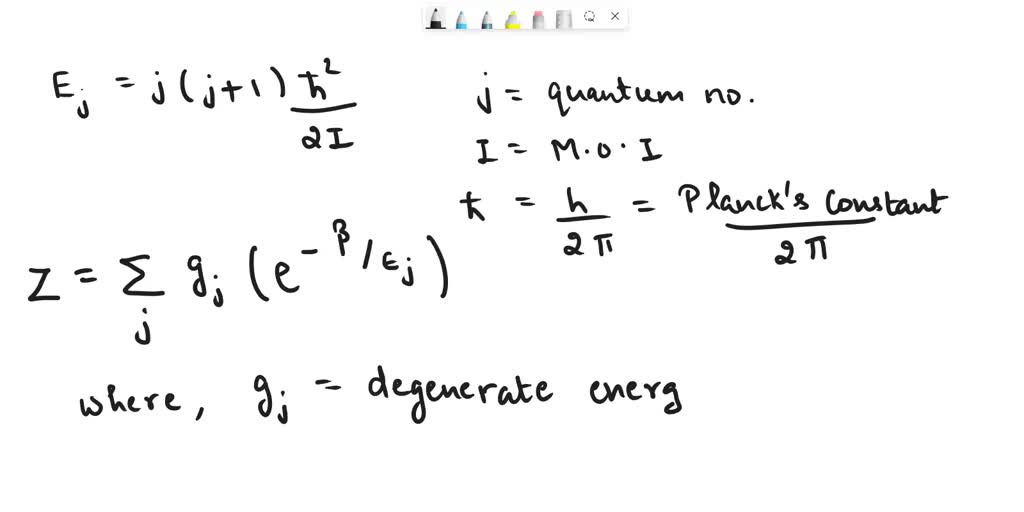 E_j = j(j+1) ħ²/2I
j = quantum no.
I = M.O.I
ħ = h/2π = Planck's constant/2π
Z = Σ_j g_j (e^{-β/ε_j})
where, g_j = degenerate energ